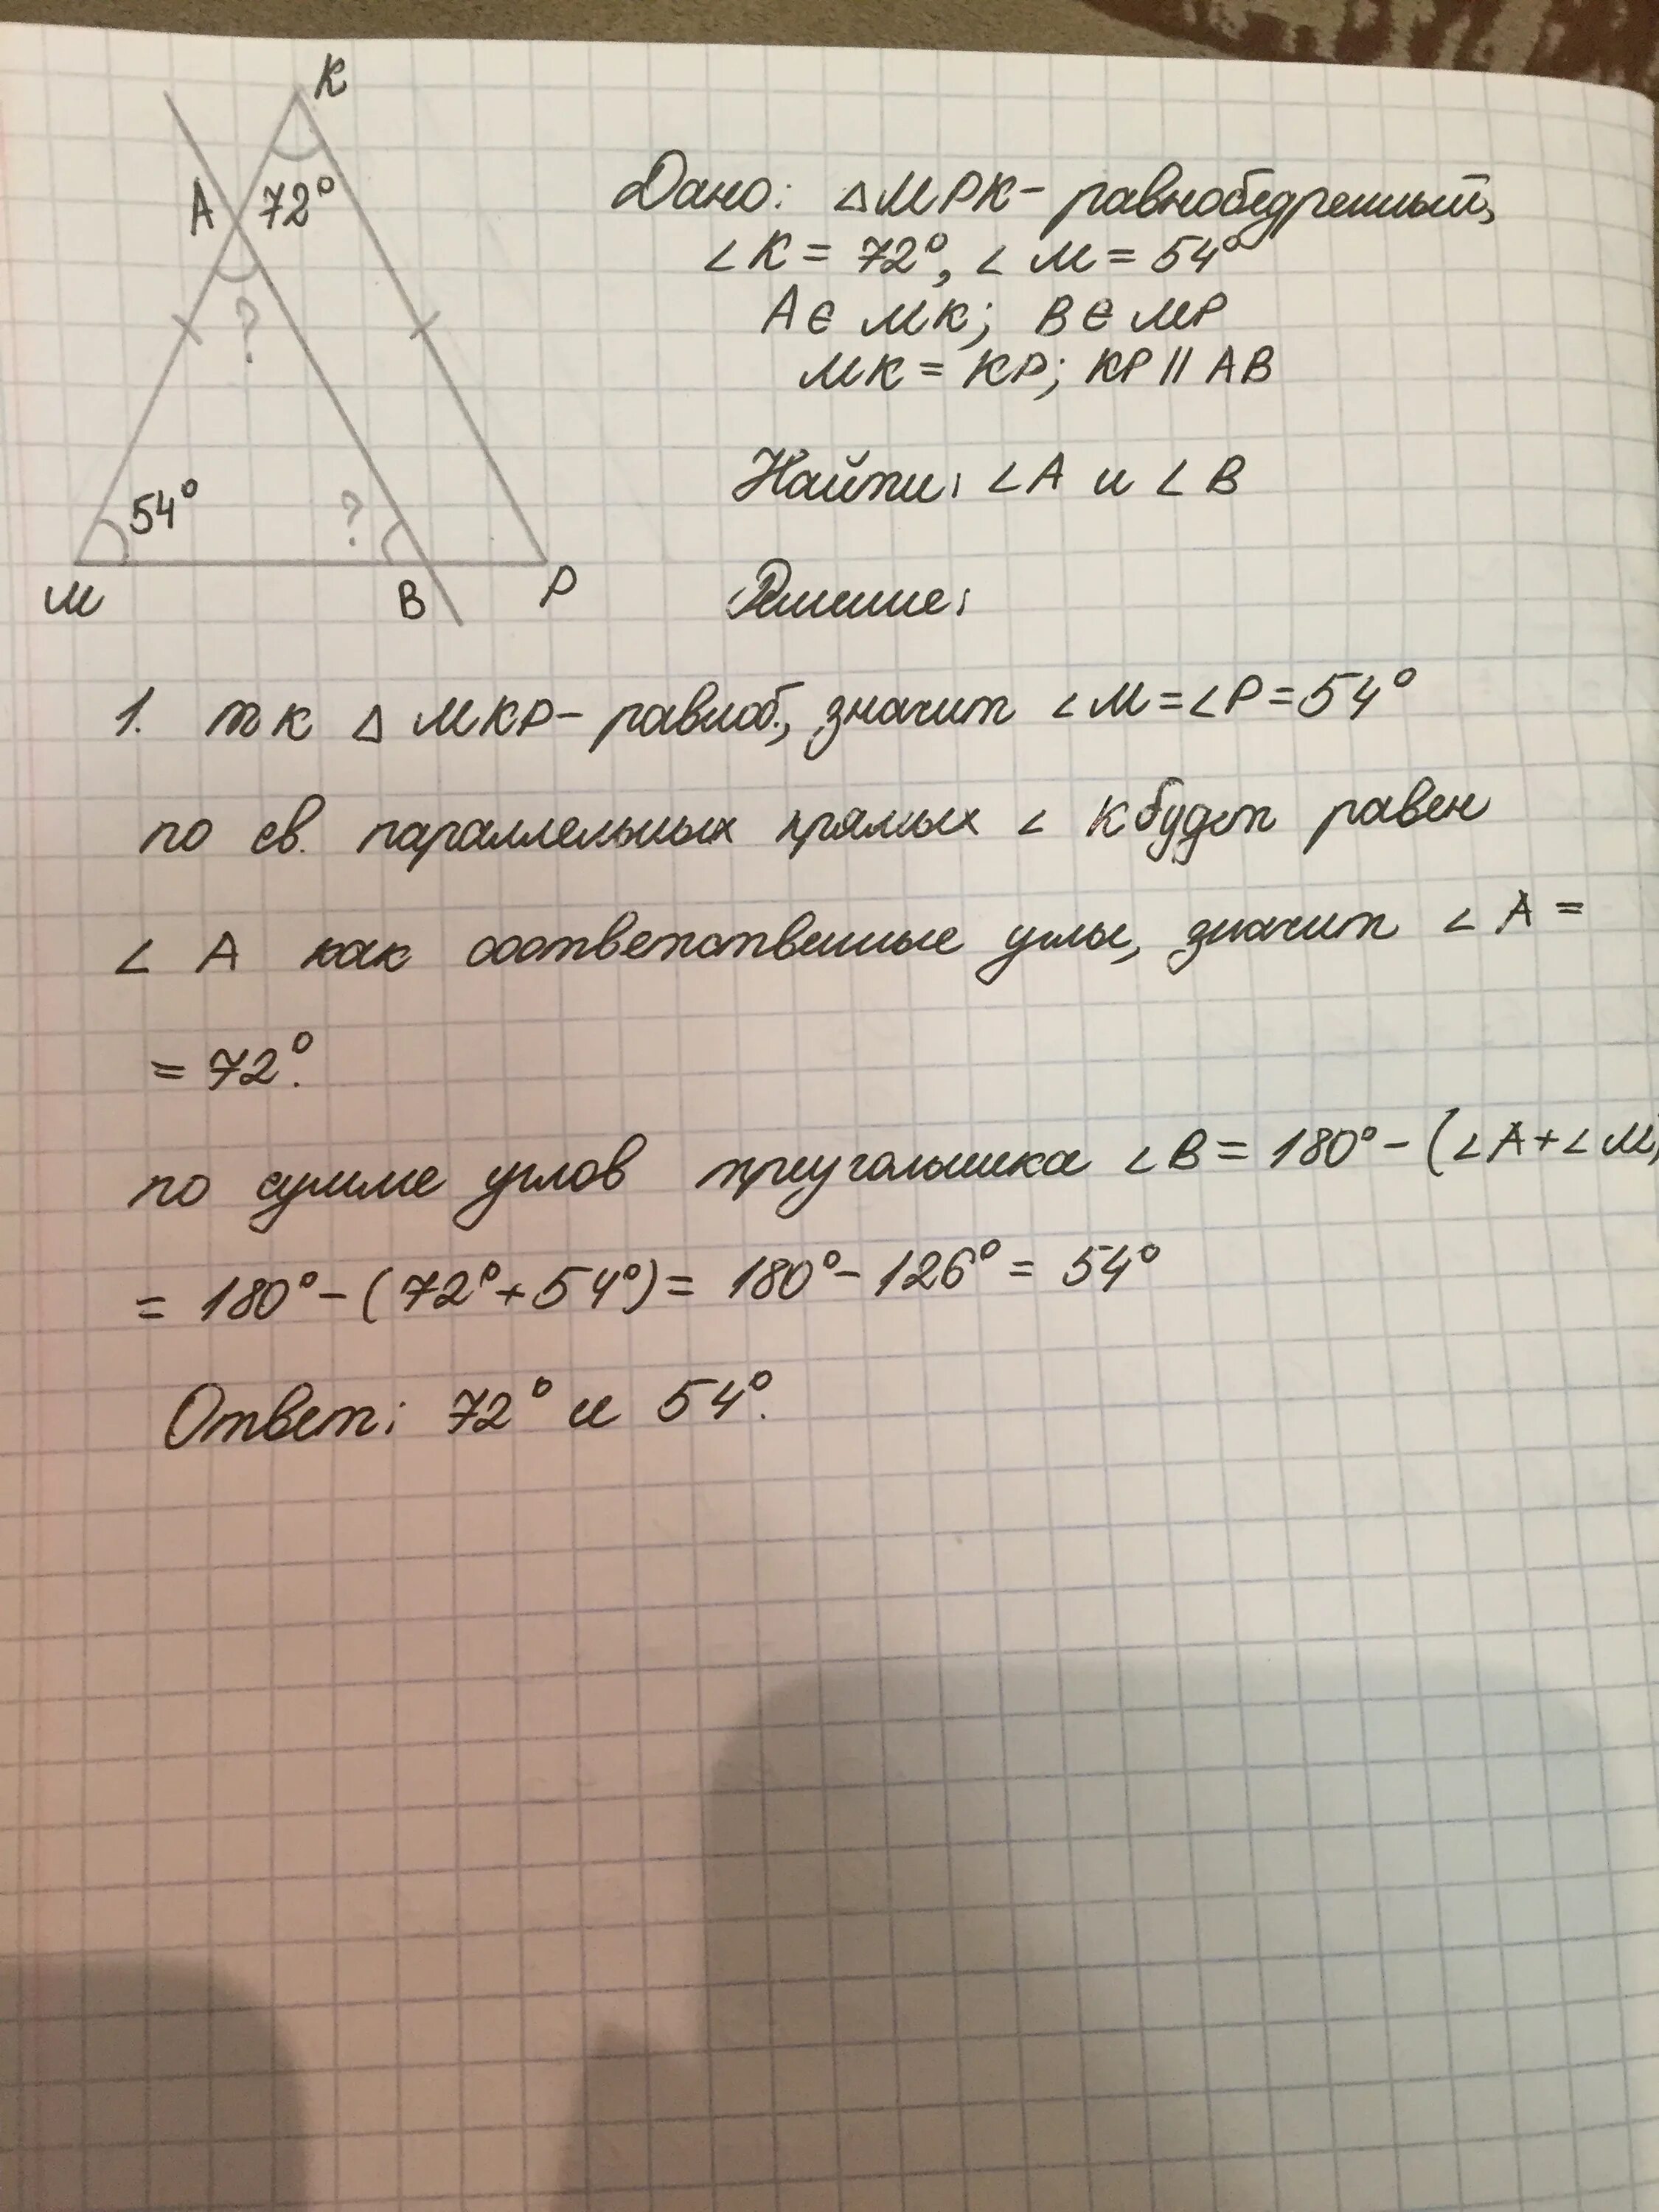 K
A 72°
?
54° ?
М В Р
Дано: △МРК - равнобедренный,
∠К = 72°, ∠М = 54°
А ∈ МК; В ∈ МР
МК = КР; КР || АВ
Найти: ∠А и ∠В
Решение:
1. т к △ МКР - равноб., значит ∠М = ∠Р = 54°
по св. параллельных прямых ∠ К будет равен
∠ А как соответственные углы, значит ∠ А =
= 72°.
по сумме углов треугольника ∠В = 180° - (∠А + ∠М)
= 180° - (72° + 54°) = 180° - 126° = 54°
Ответ: 72° и 54°.